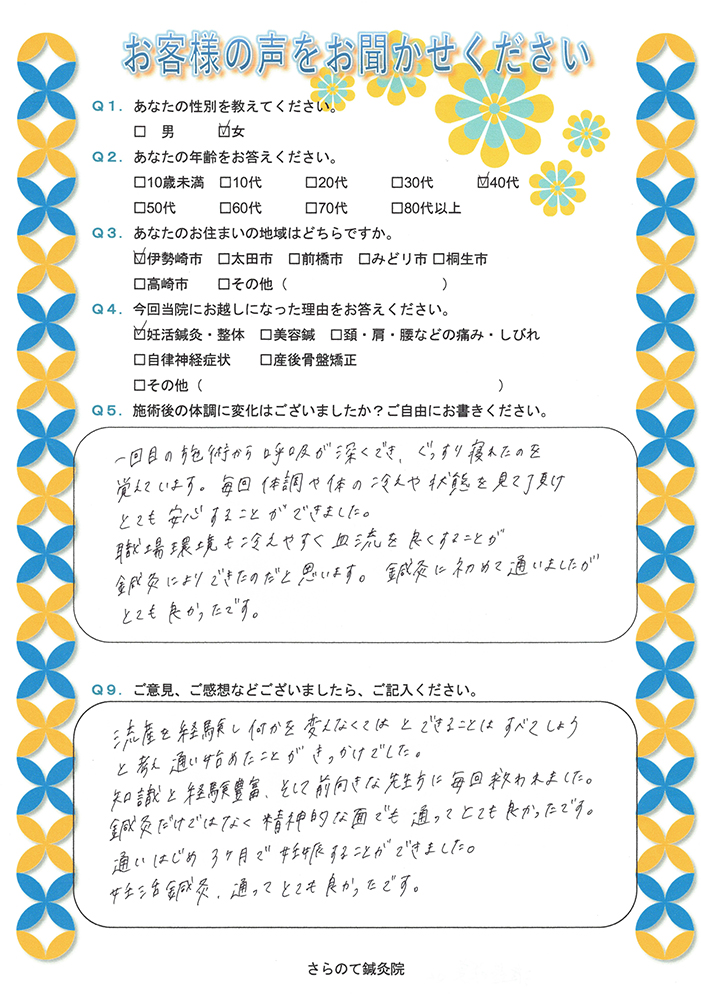 お客様の声をお聞かせください
Q1．あなたの性別を教えてください。
□ 男 ☑女
Q2．あなたの年齢をお答えください。
□10歳未満 □10代 □20代 □30代 ☑40代
□50代 □60代 □70代 □80代以上
Q3．あなたのお住まいの地域はどちらですか。
☑伊勢崎市 □太田市 □前橋市 □みどり市 □桐生市
□高崎市 □その他（ ）
Q4．今回当院にお越しになった理由をお答えください。
☑妊活鍼灸・整体 □美容鍼 □頚・肩・腰などの痛み・しびれ
□自律神経症状 □産後骨盤矯正
□その他（ ）
Q5．施術後の体調に変化はございましたか？ご自由にお書きください。
一回目の施術から呼吸が深くでき、ぐっすり寝れたのを
覚えています。毎回体調や体の冷えや状態を見て頂け
とても安心することができました。
職場環境も冷えやすく血流を良くすることが
鍼灸によりできたのだと思います。鍼灸に初めて通いましたが
とても良かったです。
Q9．ご意見、ご感想などございましたら、ご記入ください。
流産を経験し何かを変えなくてはとできることはすべてしよう
と考え通い始めたことがきっかけでした。
知識と経験豊富、そして前向きな先生方に毎回救われました。
鍼灸だけではなく精神的な面でも通ってとても良かったです。
通いはじめ3ヶ月で妊娠することができました。
妊活鍼灸、通ってとても良かったです。
さらのて鍼灸院